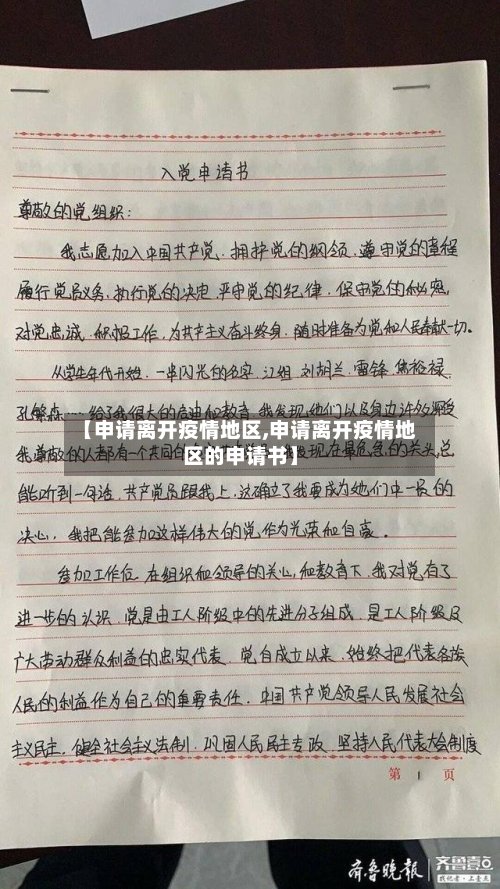 入党申请书
尊敬的党组织:
我志愿加入中国共产党,拥护党的纲领,遵守党的章程
履行党员义务,执行党的决定,严守党的纪律,保守党的秘密,
对党忠诚,积极工作,为共产主义奋斗终身,随时准备为党和人民奉献一切。
从学生年代开始,一串闪光的名字,江姐,刘胡兰,雷锋,焦裕禄
孔繁森……给了我很大的启迪和教育。我发现她们以及身边许多
【申请离开疫情地区,申请离开疫情地
区的申请书】
我尊敬的人都有一个共同的 现在最危急的关头,总
能听到一句话,共产党员跟我上,这确立了我要成为她们中一员的
决心,我把能参加这样伟大的党作为光荣和自豪。
参加工作位,在组织和领导的关心,和教育下,我对党有了
进一步的认识,党是由工人阶级中的先进分子组成,是工人阶级及
广大劳动群众利益的忠实代表,党自成立以来,始终把代表各族
人民的利益作为自己的重要责任,中国共产党领导人民发展社会
主义民主,健全社会主义法制,巩固人民民主专政,坚持人民代表大会制度
第 1 页
齐鲁晚报 齐鲁壹点
我们记者·上壹点